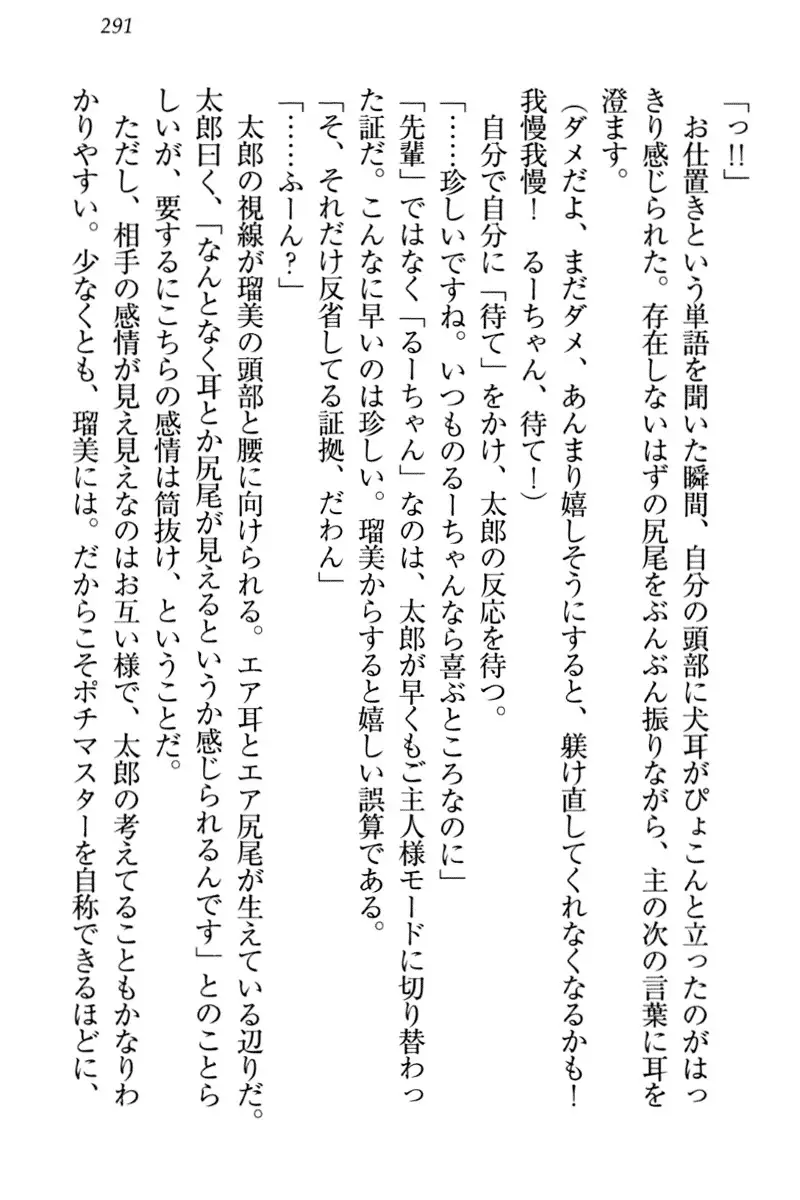 291
「っ!!」
　お仕置きという単語を聞いた瞬間、自分の頭部に犬耳がぴょこんと立ったのがはっ
きり感じられた。存在しないはずの尻尾をぶんぶん振りながら、主の次の言葉に耳を
澄ます。
（ダメだよ、まだダメ、あんまり嬉しそうにすると、躾け直してくれなくなるかも！
我慢我慢！　るーちゃん、待て！）
　自分で自分に「待て」をかけ、太郎の反応を待つ。
「……珍しいですね。いつものるーちゃんなら喜ぶところなのに」
「先輩」ではなく「るーちゃん」なのは、太郎が早くもご主人様モードに切り替わっ
た証だ。こんなに早いのは珍しい。瑠美からすると嬉しい誤算である。
「そ、それだけ反省してる証拠、だわん」
「……ふーん？」
　太郎の視線が瑠美の頭部と腰に向けられる。エア耳とエア尻尾が生えている辺りだ。
太郎曰く、「なんとなく耳とか尻尾が見えるというか感じられるんです」とのことら
しいが、要するにこちらの感情は筒抜け、ということだ。
　ただし、相手の感情が見え見えなのはお互い様で、太郎の考えてることもかなりわ
かりやすい。少なくとも、瑠美には。だからこそポチマスターを自称できるほどに、